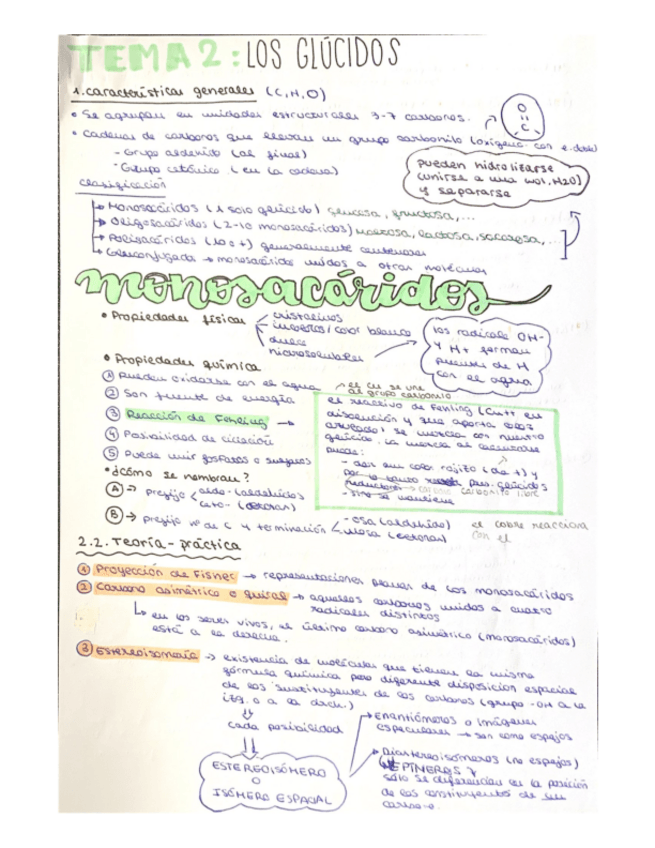 TEMA 2: LOS GLÚCIDOS
1. características generales (C, H, O)
• Se agrupan en unidades estructurales 3-7 carbonos.
O
C
• Cadenas de carbonos que llevan un grupo carbonilo (oxígeno con e. doble)
- Grupo aldehído (al final)
- Grupo cetónico (en la cadena)
pueden hidrolizarse
(unirse a una mol. H2O)
y separarse
Clasificación
Monosacáridos (1 solo glúcido) glucosa, fructosa,...
Oligosacáridos (2-10 monosacáridos) maltosa, lactosa, sacarosa,...
Polisacáridos (10 o +) generalmente centenares
→ monosacáridos unidos a otras moléculas
monosacáridos
• Propiedades físicas
cristalinos
color blanco
dulces
hidrosolubles
los radicales OH-
y H+ forman
puentes de H
con el agua
• Propiedades química
① Pueden oxidarse con el agua
② Son fuente de energía
③ Reacción de Fehling →
④ Posibilidad de ciclación
⑤ Puede unir fosfatos o sulfatos
el Cu se une
al grupo carbonilo
el reactivo de Fehling (Cu++ en
disolución y que aporta color
azulado) se mezcla con nuestro
glúcido. La mezcla al calentarse
puede:
- dar un color rojito (Cu+) y
por lo tanto glúcidos
reductores → carbonilo libre
- sino se mantiene
• ¿cómo se nombran?
Ⓐ → prefijo aldo- (aldehídos)
ceto- (cetonas)
Ⓑ → prefijo nº de C y terminación -osa (aldehído)
-ulosa (cetonas)
el cobre reacciona
con el
2.2. Teoría-práctica
① Proyección de Fisher → representaciones planas de los monosacáridos
② Carbono asimétrico o quiral → aquellos carbonos unidos a cuatro
radicales distintos
↳ en los seres vivos, el último carbono asimétrico (monosacáridos)
está a la derecha.
③ Estereoisomería → existencia de moléculas que tienen la misma
fórmula química pero diferente disposición espacial
de los sustituyentes de los carbonos (grupo -OH a la
izq. o a la dcha.)
cada posibilidad
ESTEREOISÓMERO
O
ISÓMERO ESPACIAL
Enantiómeros o imágenes
especulares → son como espejos
Diastereoisómeros (no espejos)
EPÍMEROS
sólo se diferencian en la posición
de los constituyentes de un
carbono.